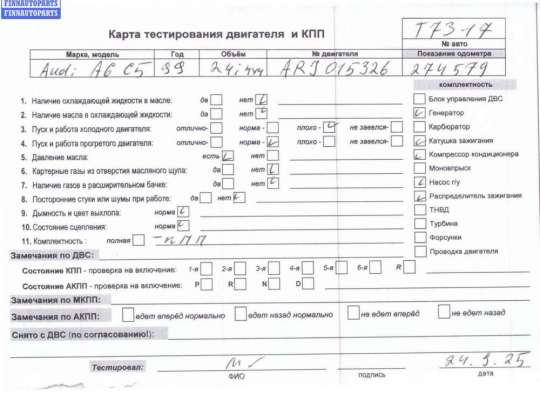 FINNAUTOPARTS
FINNAUTOPARTS
Карта тестирования двигателя и КПП
T73-17
№ авто
Марка, модель Год Объём № двигателя Показание одометра
Audi A6 C5 99 2.4i ARJ 015326 274579
комплектность
1. Наличие охлаждающей жидкости в масле: да нет
2. Наличие масла в охлаждающей жидкости: да нет
3. Пуск и работа холодного двигателя: отлично- норма - плохо - не завелся-
4. Пуск и работа прогретого двигателя: отлично- норма - плохо - не завелся-
5. Давление масла: есть нет
6. Картерные газы из отверстия масляного щупа: да нет
7. Наличие газов в расширительном бачке: да нет
8. Посторонние стуки или шумы при работе: да нет
9. Дымность и цвет выхлопа: норма
10. Состояние сцепления: норма
11. Комплектность : полная - КПП
Блок управления ДВС
Генератор
Карбюратор
Катушка зажигания
Компрессор кондиционера
Моновпрыск
Насос г/у
Распределитель зажигания
ТНВД
Турбина
Форсунки
Проводка двигателя
Замечания по ДВС:
Состояние КПП - проверка на включение: 1-я 2-я 3-я 4-я 5-я 6-я R
Состояние АКПП - проверка на включение: P R N D
Замечания по МКПП:
Замечания по АКПП: едет вперёд нормально едет назад нормально не едет вперёд не едет назад
Снято с ДВС (по согласованию!):
Тестировал: 24.9.25
ФИО подпись дата